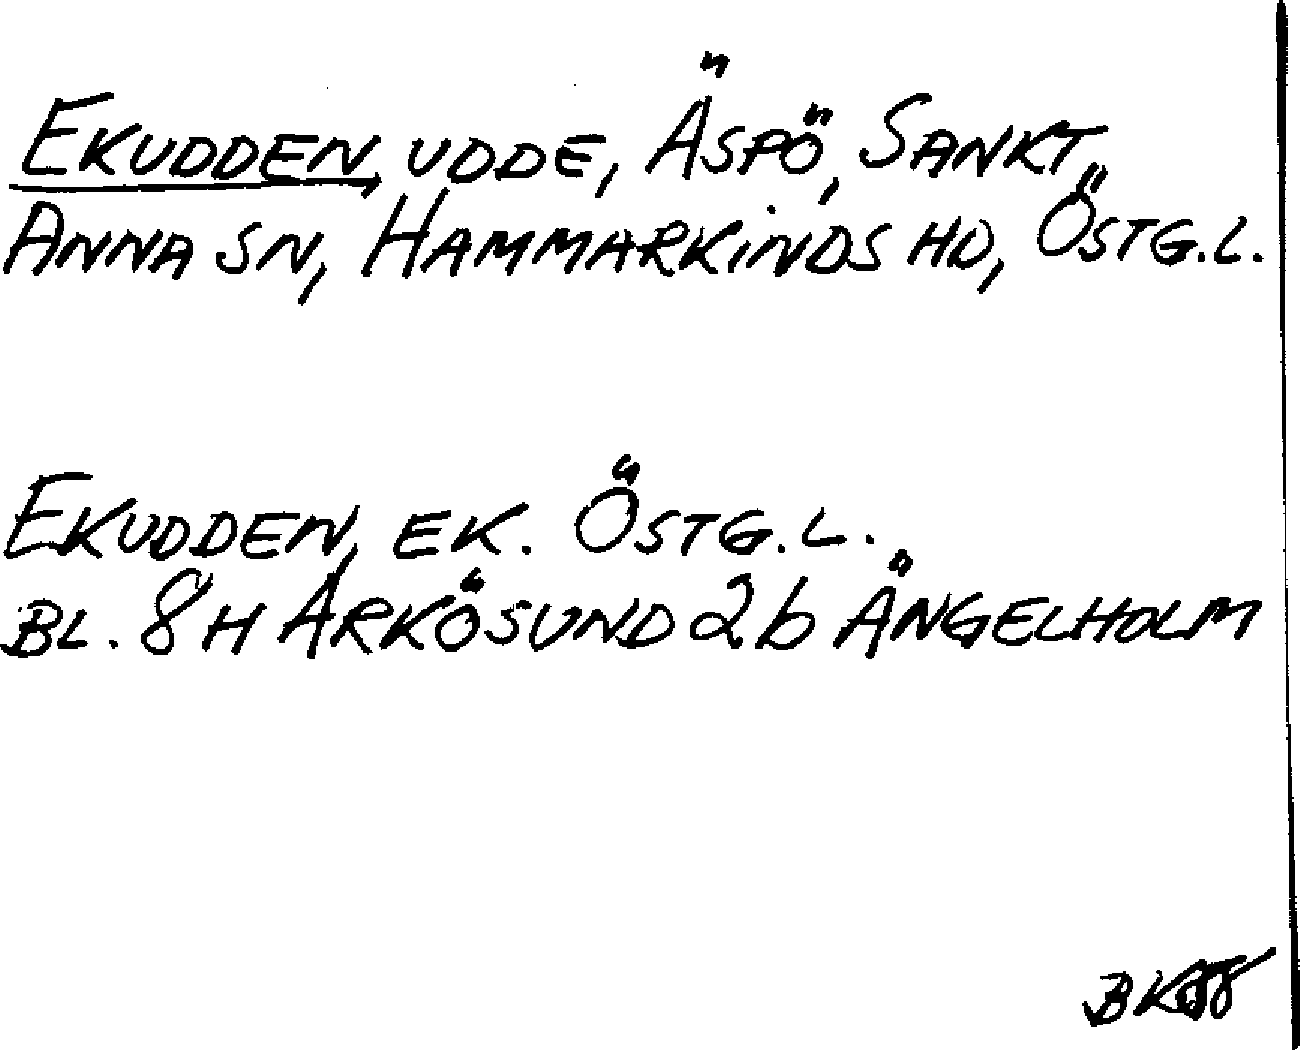 EKUDDEN, UDDE, ÄSPÖ, SANKT
ANNA SN, HAMMARKINDS HD, ÖSTG.L.
EKUDDEN, EK. ÖSTG.L.
BL. 8H ARKÖSUND 2b ÄNGELHOLM